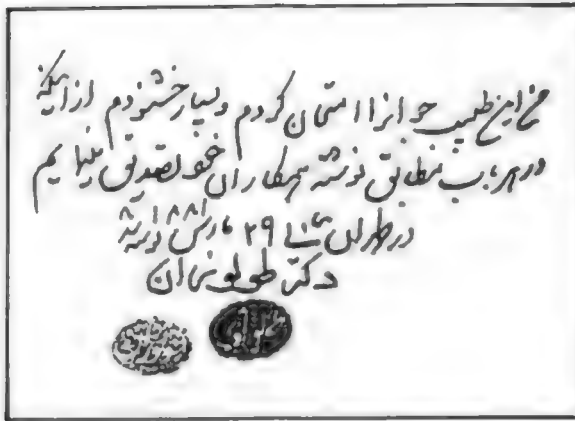 من این طبیب جوانرا امتحان کردم و بسیار خشنودم از اینکه
در هر باب مطابق نوشته همکاران خود تصدیق مینمایم
در طهران ۲۹ مارس ۱۸۸۱
دکتر طولوزان